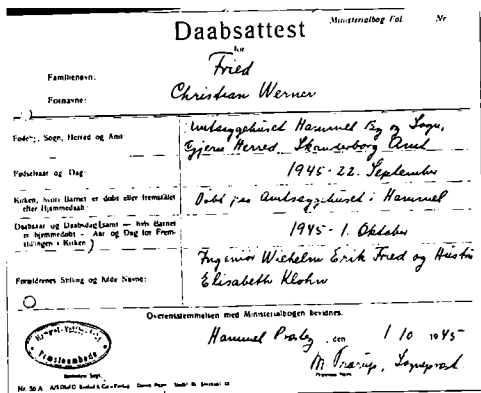 Ministerialbog Fol. Nr
Daabsattest
for
Familienavn: Fried
Fornavne: Christian Werner
Fødeby, Sogn, Herred og Amt: Amtssygehuset Hammel By og Sogn,
Gjern Herred, Skanderborg Amt
Fødselsaar og Dag: 1945 - 22. September
Kirken, hvori Barnet er døbt eller fremstillet
efter Hjemmedaab: Døbt paa Amtssygehuset i Hammel
Daabsaar og Daabsdag (samt — hvis Barnet
er hjemmedøbt — Aar og Dag for Frem-
stillingen i Kirken) 1945 - 1. Oktober
Forældrenes Stilling og fulde Navne: Ingeniør Wilhelm Erik Fried og Hustru
Elisabeth Klohn
Overensstemmelsen med Ministerialbogen bevidnes.
Hammel Præsteg., den 1/10 1945
Sognepræst
Embedets Segl.
Præstens Navn.
Nr. 56 A